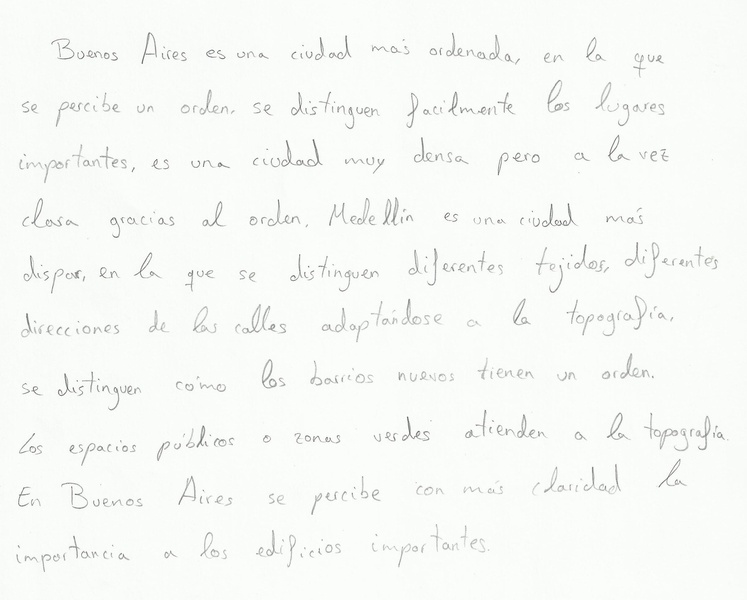 Buenos Aires es una ciudad más ordenada, en la que
se percibe un orden. se distinguen facilmente los lugares
importantes, es una ciudad muy densa pero a la vez
clara gracias al orden. Medellín es una ciudad más
dispar, en la que se distinguen diferentes tejidos, diferentes
direcciones de las calles adaptándose a la topografía.
se distinguen cómo los barrios nuevos tienen un orden.
Los espacios públicos o zonas verdes atienden a la topografía
En Buenos Aires se percibe con más claridad la
importancia a los edificios importantes.